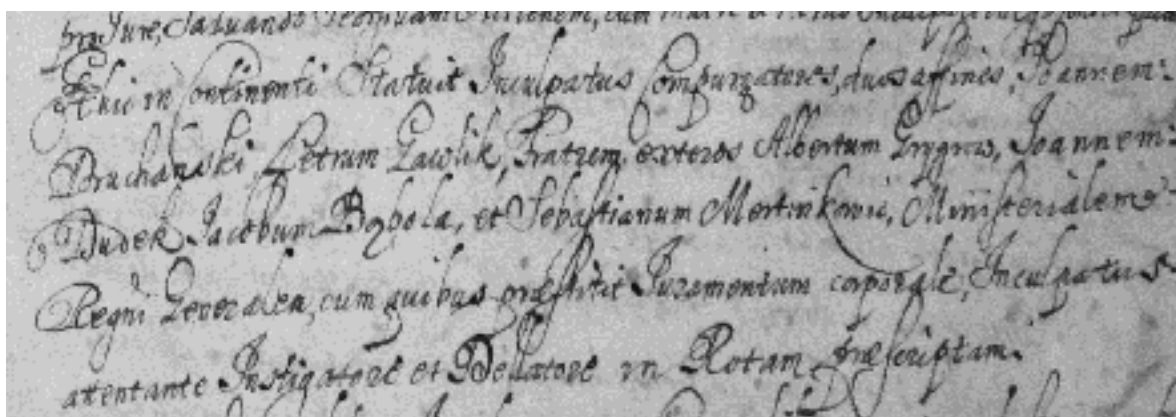 Jure, Salvando
Et hic in Continenti Statuit Inculpatus Compurgatores, duos affines, Joannem
Bruchanski, Petrum Gawlik, Fratrem, exteros Albertum Grygrus, Joannem
Dudek Jacobum Bobola, et Sebastianum Mertinkowic, Ministerialem
Regni Generalem, cum quibus præstitit Juramentum corporale, Inculpatus
attentante Instigatore et Delatore in Rotam præscriptam.